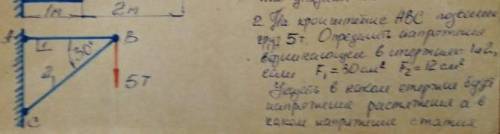 1м 2м
A 1 B
30°
2
5т
C
2. На кронштейне АВС подвешен
груз 5т. Определить напряжения
возникающее в стержнях 1 и 2,
если F₁ = 30 см² F₂ = 12 см²
Указать в каком стержне будет
напряжение растяжения а в
каком напряжение сжатия